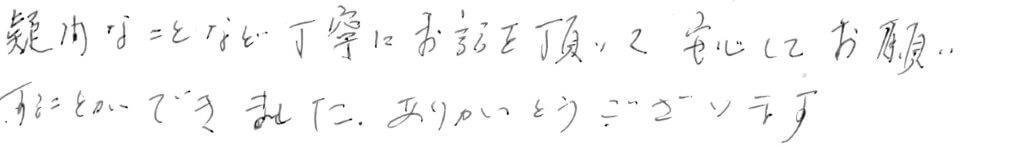 疑問なことなど丁寧にお話を頂いて安心してお願い
することができました.ありがとうございます